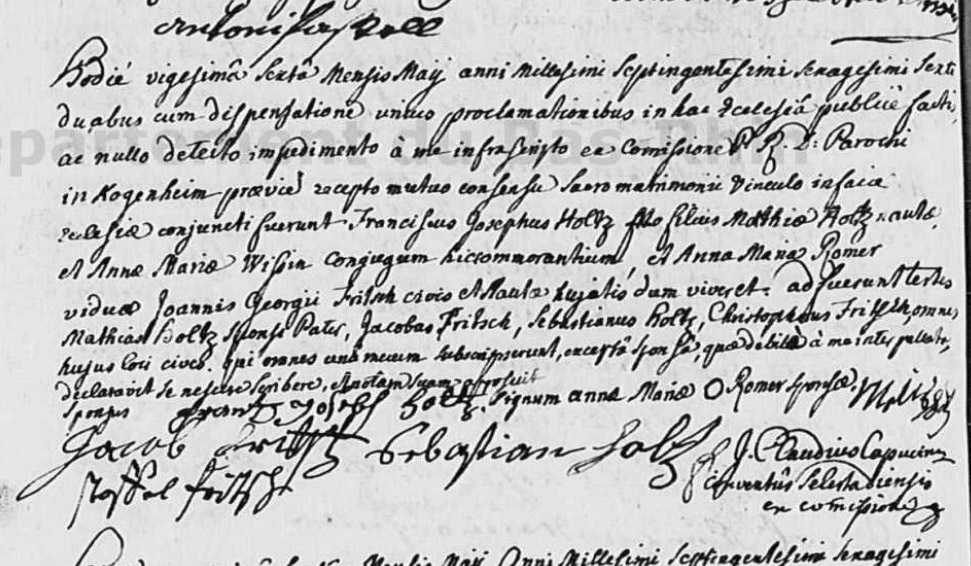 Hodie vigesimâ sextâ Mensis Maij anni Millesimi Septingentesimi sexagesimi sexti
duabus cum dispensatione unius proclamationibus in hac Ecclesiâ publicè factis
ac nullo detecto impedimento à me infrascripto ex Comissione R. D: Parochi
in Kogenheim præviè recepto mutuo consensu sacro matrimonii vinculo in facie
ecclesiæ conjuncti fuerunt Franciscus Josephus Holtz filius Mathiæ Holtz nautæ
et Annæ Mariæ Wissin conjugum hic commorantium et Anna Maria Romer
vidua Joannis Georgii Fritsch civis et Nautæ hujatis dum viveret. adfuerunt testes
Mathias Holtz sponsi Pater, Jacobus Fritsch, Sebastianus Holtz, Christophorus Fritsch, omnes
hujus loci cives. qui omnes unà mecum subscripserunt, exceptâ sponsâ, quæ debitè à me interpellata,
declaravit se nescire scribere, et notam suam apposuit
sponsus frantz Joseph holtz. signum annæ Mariæ O Romer sponsæ
Jacob Fritsch Sebastian holtz
F. J. Claudius Capucinus
stoffel fritsch
Conventûs Selestadiensis
ex comissione
Mensis Maij Anni Millesimi Septingentesimi sexagesimi
Departement du Bas-Rhin